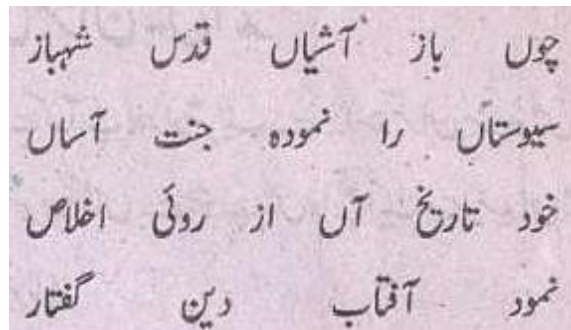 چوں باز آشیاں قدس شہباز
سیوستاں را نمودہ جنت آساں
خود تاریخ آں از روئی اخلاص
نمود آفتاب دین گفتار